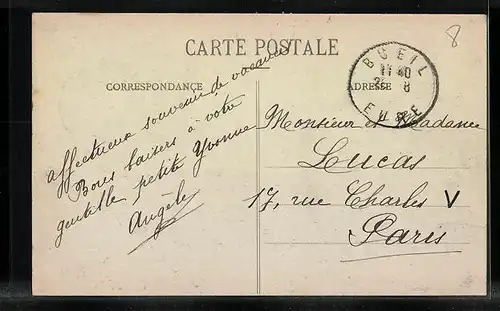 8
CARTE POSTALE
BUEIL
11 40
2 8
EURE
CORRESPONDANCE
ADRESSE
affectueux souvenir de vacances
Bons baisers à votre
gentille petite Yvonne
Angele
Monsieur et Madame
Lucas
17, rue Charles V
Paris